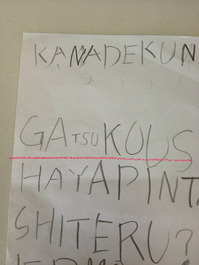 KANADEKUN
GATSUKOUS
HAYAPINT
SHITERU?